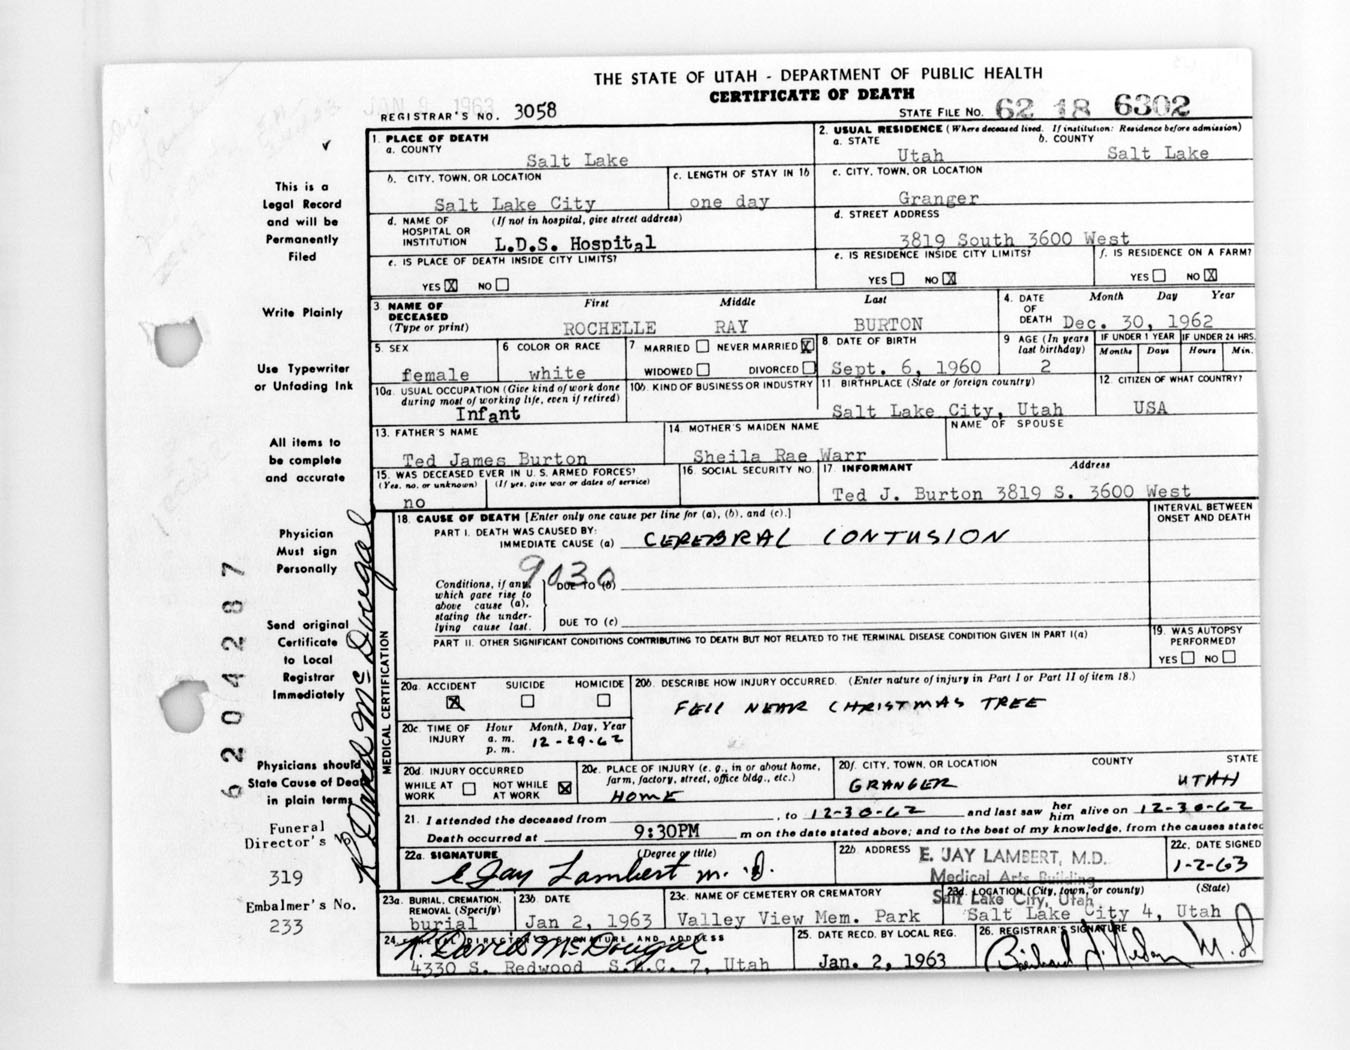 THE STATE OF UTAH - DEPARTMENT OF PUBLIC HEALTH
CERTIFICATE OF DEATH
JAN 8 1963
REGISTRAR'S NO. 3058
STATE FILE NO. 62 18 6302
1. PLACE OF DEATH
a. COUNTY
Salt Lake
2. USUAL RESIDENCE (Where deceased lived. If institution: Residence before admission)
a. STATE b. COUNTY
Utah Salt Lake
b. CITY, TOWN, OR LOCATION
Salt Lake City
c. LENGTH OF STAY IN 1b
one day
c. CITY, TOWN, OR LOCATION
Granger
d. NAME OF HOSPITAL OR INSTITUTION (If not in hospital, give street address)
L.D.S. Hospital
d. STREET ADDRESS
3819 South 3600 West
e. IS PLACE OF DEATH INSIDE CITY LIMITS?
YES X NO
e. IS RESIDENCE INSIDE CITY LIMITS?
YES NO X
f. IS RESIDENCE ON A FARM?
YES NO X
3 NAME OF DECEASED (Type or print)
First Middle Last
ROCHELLE RAY BURTON
4. DATE OF DEATH Month Day Year
Dec. 30, 1962
5. SEX
female
6 COLOR OR RACE
white
7 MARRIED NEVER MARRIED X
WIDOWED DIVORCED
8 DATE OF BIRTH
Sept. 6, 1960
9 AGE (In years last birthday)
2
IF UNDER 1 YEAR
Months Days
IF UNDER 24 HRS.
Hours Min.
10a. USUAL OCCUPATION (Give kind of work done during most of working life, even if retired)
Infant
10b. KIND OF BUSINESS OR INDUSTRY
11 BIRTHPLACE (State or foreign country)
Salt Lake City, Utah
12 CITIZEN OF WHAT COUNTRY?
USA
13. FATHER'S NAME
Ted James Burton
14. MOTHER'S MAIDEN NAME
Sheila Rae Warr
NAME OF SPOUSE
15. WAS DECEASED EVER IN U. S. ARMED FORCES?
(Yes, no, or unknown) (If yes, give war or dates of service)
no
16. SOCIAL SECURITY NO.
17. INFORMANT Address
Ted J. Burton 3819 S. 3600 West
18. CAUSE OF DEATH [Enter only one cause per line for (a), (b), and (c).]
INTERVAL BETWEEN ONSET AND DEATH
PART I. DEATH WAS CAUSED BY:
IMMEDIATE CAUSE (a) CEREBRAL CONTUSION
9030
Conditions, if any, which gave rise to above cause (a), stating the underlying cause last.
DUE TO (b)
DUE TO (c)
PART II. OTHER SIGNIFICANT CONDITIONS CONTRIBUTING TO DEATH BUT NOT RELATED TO THE TERMINAL DISEASE CONDITION GIVEN IN PART I(a)
19. WAS AUTOPSY PERFORMED?
YES NO
MEDICAL CERTIFICATION
20a. ACCIDENT SUICIDE HOMICIDE
X
20b. DESCRIBE HOW INJURY OCCURRED. (Enter nature of injury in Part I or Part II of item 18.)
FELL NEAR CHRISTMAS TREE
20c. TIME OF INJURY Hour a. m. p. m. Month, Day, Year
12-29-62
20d. INJURY OCCURRED
WHILE AT WORK NOT WHILE AT WORK X
20e. PLACE OF INJURY (e. g., in or about home, farm, factory, street, office bldg., etc.)
HOME
20f. CITY, TOWN, OR LOCATION COUNTY STATE
GRANGER UTAH
21. I attended the deceased from , to 12-30-62 and last saw her him alive on 12-30-62
Death occurred at 9:30PM m on the date stated above; and to the best of my knowledge, from the causes stated
22a. SIGNATURE (Degree or title)
E Jay Lambert M.D.
22b. ADDRESS
E. JAY LAMBERT, M.D.
Medical Arts Building
Salt Lake City, Utah
22c. DATE SIGNED
1-2-63
23a. BURIAL, CREMATION, REMOVAL (Specify)
burial
23b. DATE
Jan 2, 1963
23c. NAME OF CEMETERY OR CREMATORY
Valley View Mem. Park
23d. LOCATION (City, town, or county) (State)
Salt Lake City 4, Utah
24. FUNERAL DIRECTOR'S SIGNATURE AND ADDRESS
K. David McDougal
4330 S. Redwood S.L.C. 7, Utah
25. DATE RECD. BY LOCAL REG.
Jan. 2, 1963
26. REGISTRAR'S SIGNATURE
This is a
Legal Record
and will be
Permanently
Filed
Write Plainly
Use Typewriter
or Unfading Ink
All items to
be complete
and accurate
Physician
Must sign
Personally
Send original
Certificate
to Local
Registrar
Immediately
Physicians should
State Cause of Death
in plain terms
Funeral
Director's No.
319
Embalmer's No.
233
6204287
K David McDougal